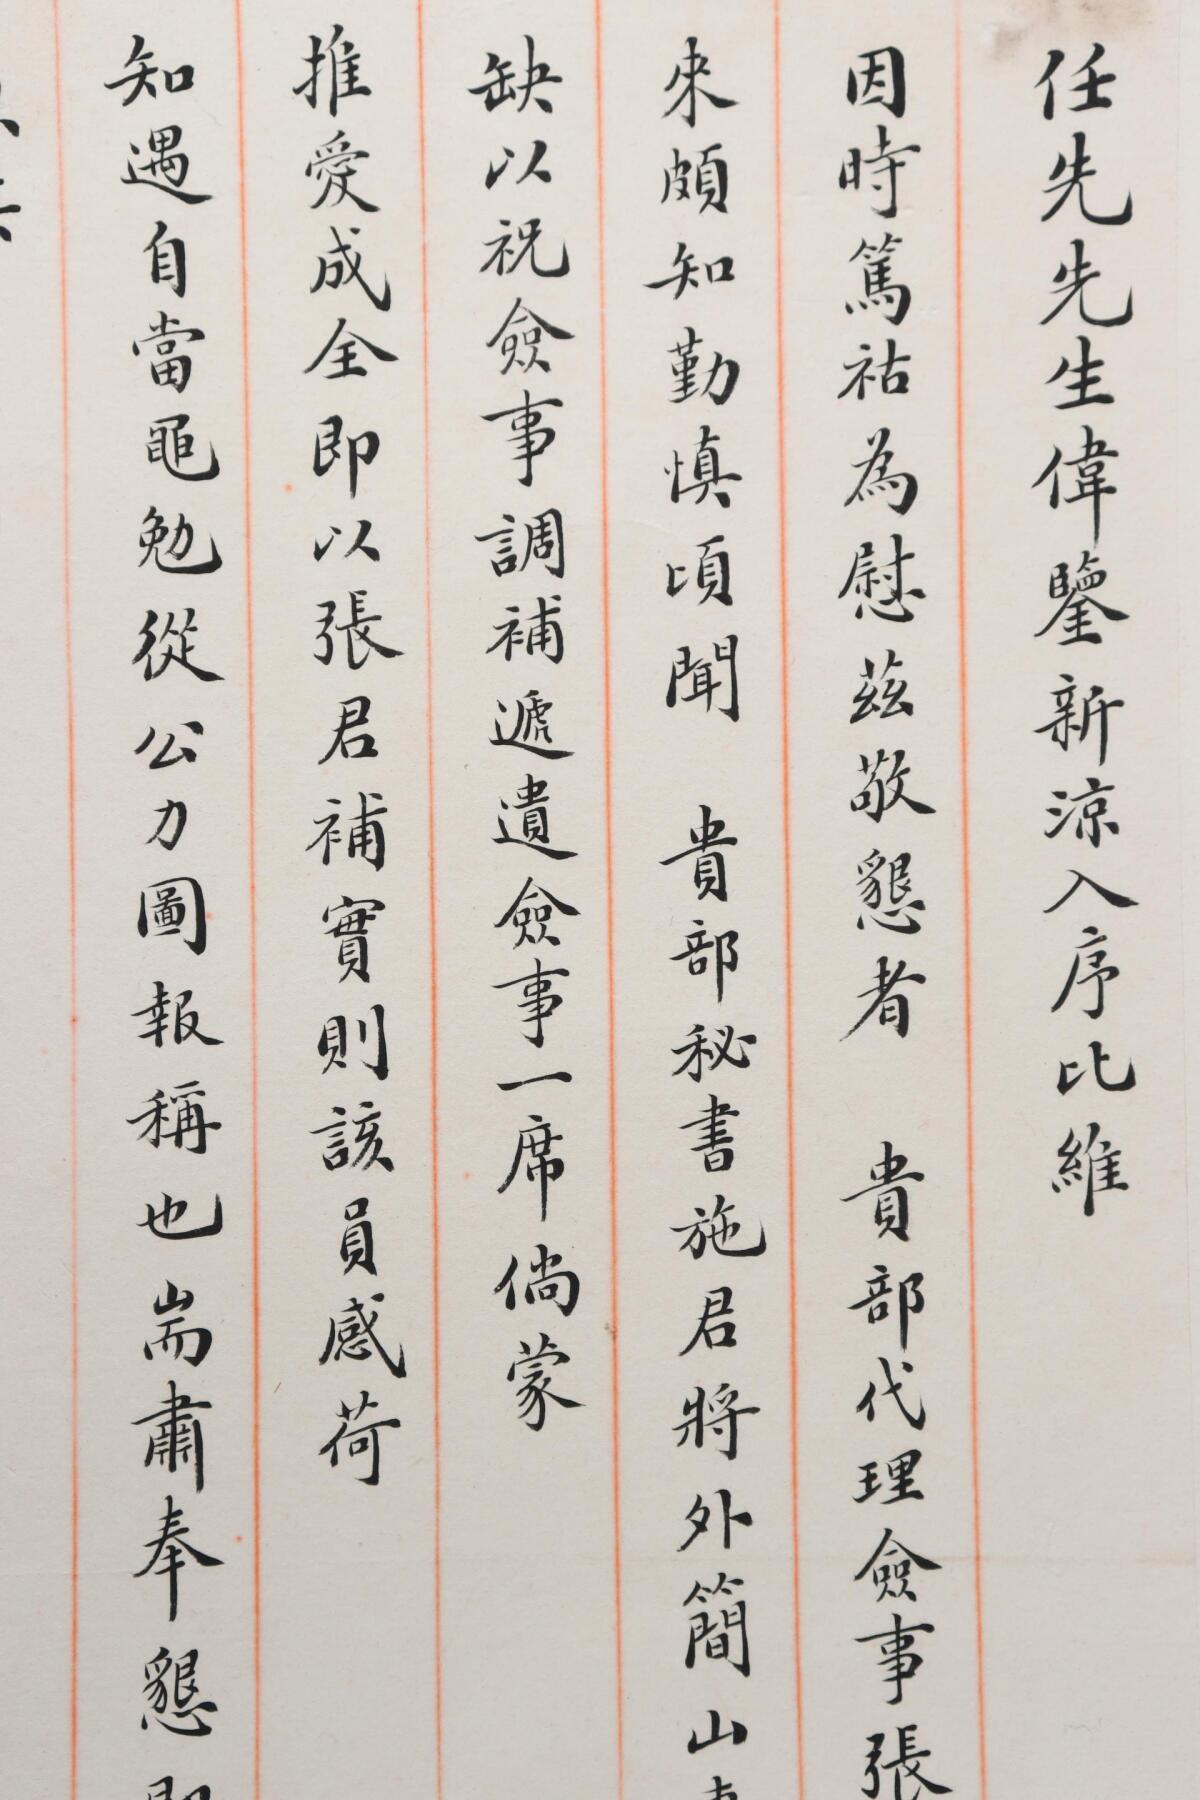 任先先生偉鑒新涼入序比維
因時篤祜為慰茲敬懇者　貴部代理僉事張
來頗知勤慎頃聞　貴部秘書施君將外簡山
缺以祝僉事調補遞遺僉事一席倘蒙
推愛成全即以張君補實則該員感荷
知遇自當黽勉從公力圖報稱也耑肅奉懇